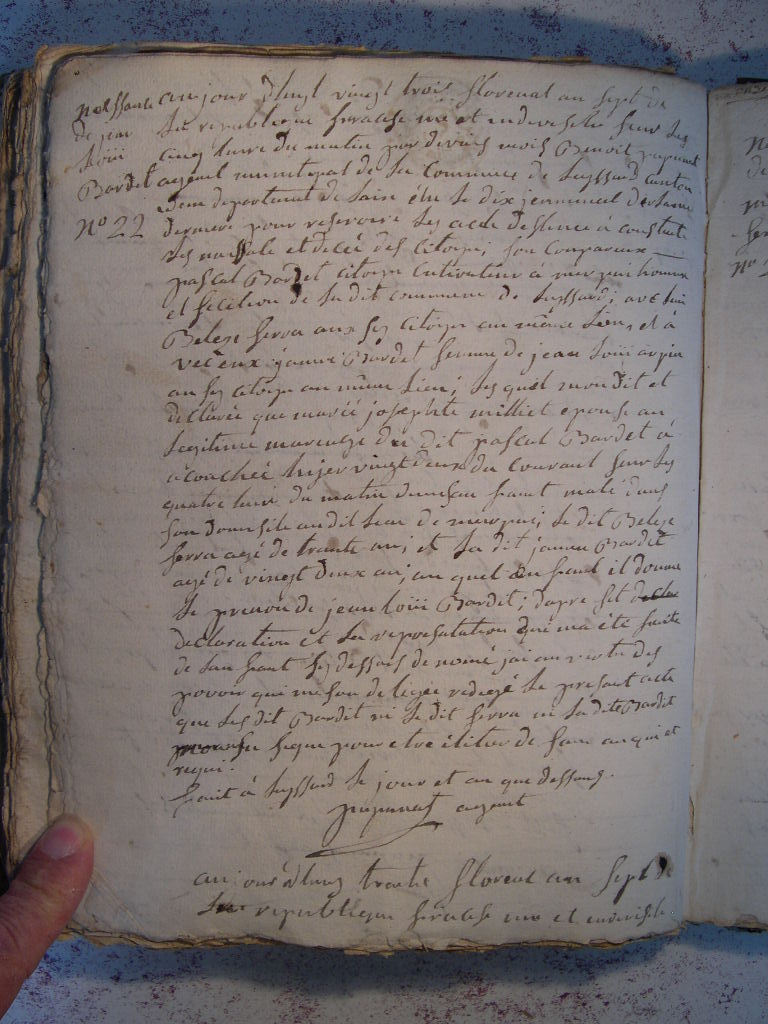 naissance
de jean
loüi
Bardet
N° 22
aujour d'huy vingt trois floreal an sept de
la republique francese une et indivisible heur les
cinq heure du matin par devans mois Benoit
agent municipal de la commune de Luyssard canton
departement de lain élu le dix jerminal derniere
derniere pour reservoire les acte destiné à constate
les naissale et decée des citoyen, son compareux
pascal Bardet citoyen cultivateur à
et de la dit commune de Luyssard; avec lui
Beleze ferra ausy citoyen au même lieu, et à
vec eux janne Bardet femme de jean loüii
au sy citoyen au même lieu; les quel mon dit et
declarée que marié josephte milliet epouse au
legitime mareage du dit pascal Bardet à
acouchéé hyer vingt deux du courant heur les
quatre heur du matin dun anfant malé dans
son domisile audit lieu de ; le dit Beleze
ferra agé de trante an; et la dit janne Bardet
agé de vingt deux an; au quel anfant il donne
le prenon de jean loüi Bardit; dapre set
declaration et la represatation qui ma été faite
de lanfant sy dessais de nomé jai an vertu des
povoir qui me son deligéé redegé le presant acte
que les dit Bardit ni le dit ferra ni la dite Bardit
signe pour etre de fere anquit et
requi.
Fait à Luyssard le jour et an que dessous.
papanat agent
aujour d'huy trante floreal an sept de
la republique francese une et indivisible